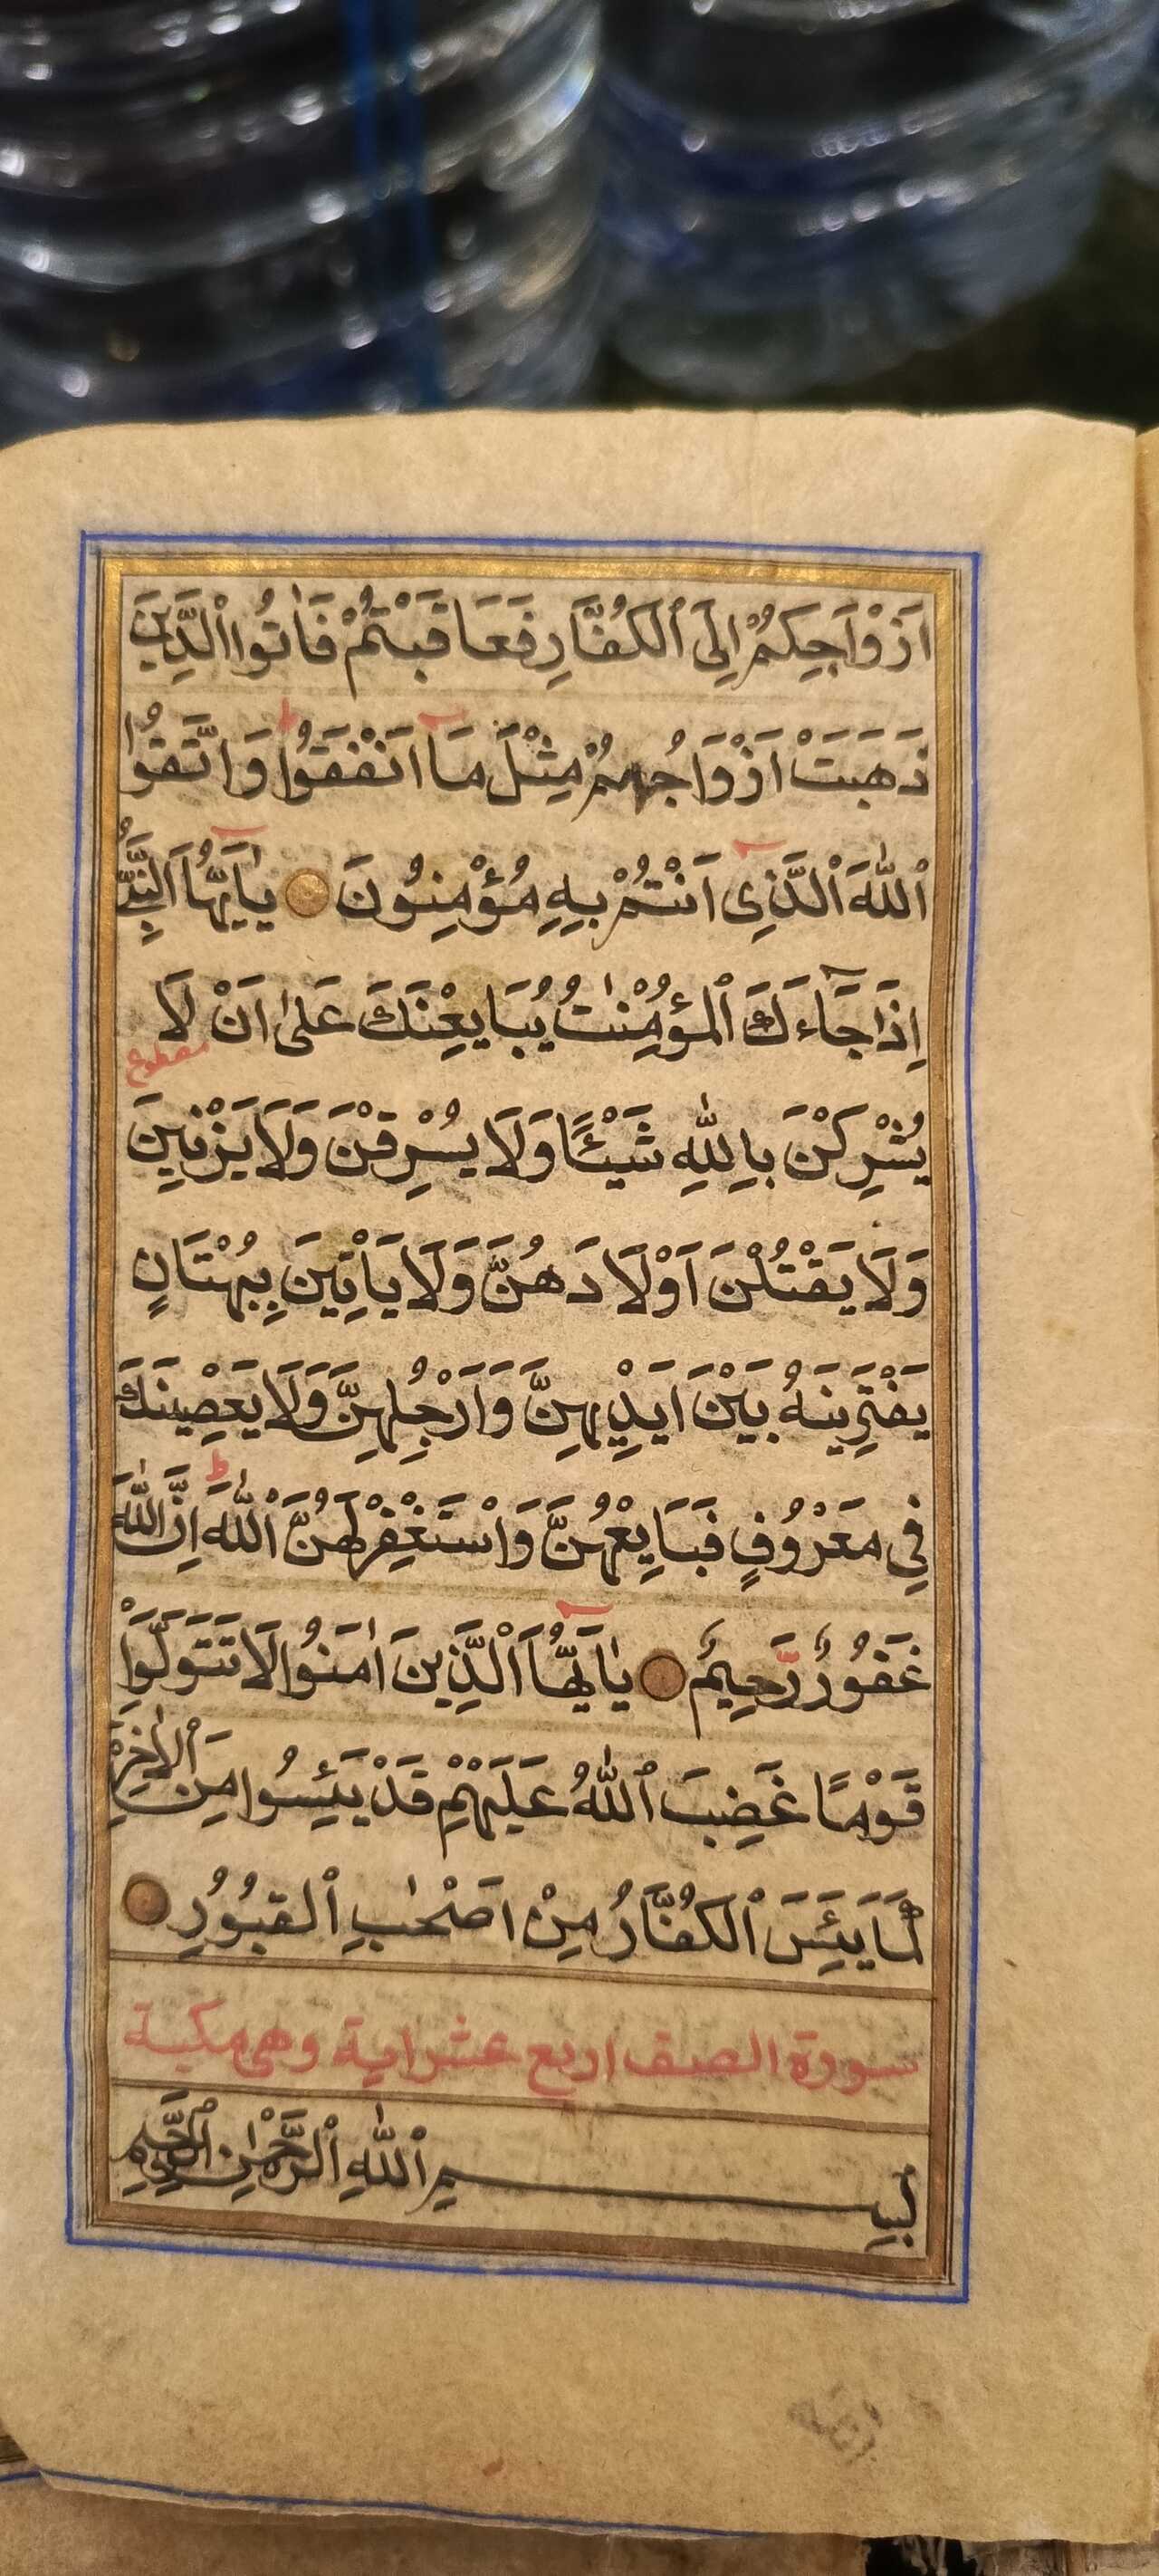 اَزْوَاجِكُمْ اِلَى ٱلْكُفَّارِ فَعَاقَبْتُمْ فَاٰتُوا ٱلَّذِينَ
ذَهَبَتْ اَزْوَاجُهُمْ مِثْلَ مَا اَنْفَقُوا ط وَاتَّقُوا
ٱللّٰهَ ٱلَّذِى اَنْتُمْ بِهِ مُؤْمِنُونَ يٰاَيُّهَا ٱلنَّبِىُّ
اِذَا جَاۤءَكَ ٱلْمُؤْمِنٰتُ يُبَايِعْنَكَ عَلٰى اَنْ لَا
مقطوع
يُشْرِكْنَ بِاللّٰهِ شَيْئًا وَلَا يَسْرِقْنَ وَلَا يَزْنِينَ
وَلَا يَقْتُلْنَ اَوْلَادَهُنَّ وَلَا يَاْتِينَ بِبُهْتَانٍ
يَفْتَرِينَهُ بَيْنَ اَيْدِيهِنَّ وَاَرْجُلِهِنَّ وَلَا يَعْصِينَكَ
فِي مَعْرُوفٍ فَبَايِعْهُنَّ وَاسْتَغْفِرْ لَهُنَّ ٱللّٰهَ ط اِنَّ ٱللّٰهَ
غَفُورٌ رَّحِيمٌ يٰاَيُّهَا ٱلَّذِينَ اٰمَنُوا لَا تَتَوَلَّوْا
قَوْمًا غَضِبَ ٱللّٰهُ عَلَيْهِمْ قَدْ يَئِسُوا مِنَ ٱلْاٰخِرَةِ
كَمَا يَئِسَ ٱلْكُفَّارُ مِنْ اَصْحٰبِ ٱلْقُبُورِ
سورة الصف اربع عشر اية وهى مكية
بِسْمِ ٱللّٰهِ ٱلرَّحْمٰنِ ٱلرَّحِيمِ